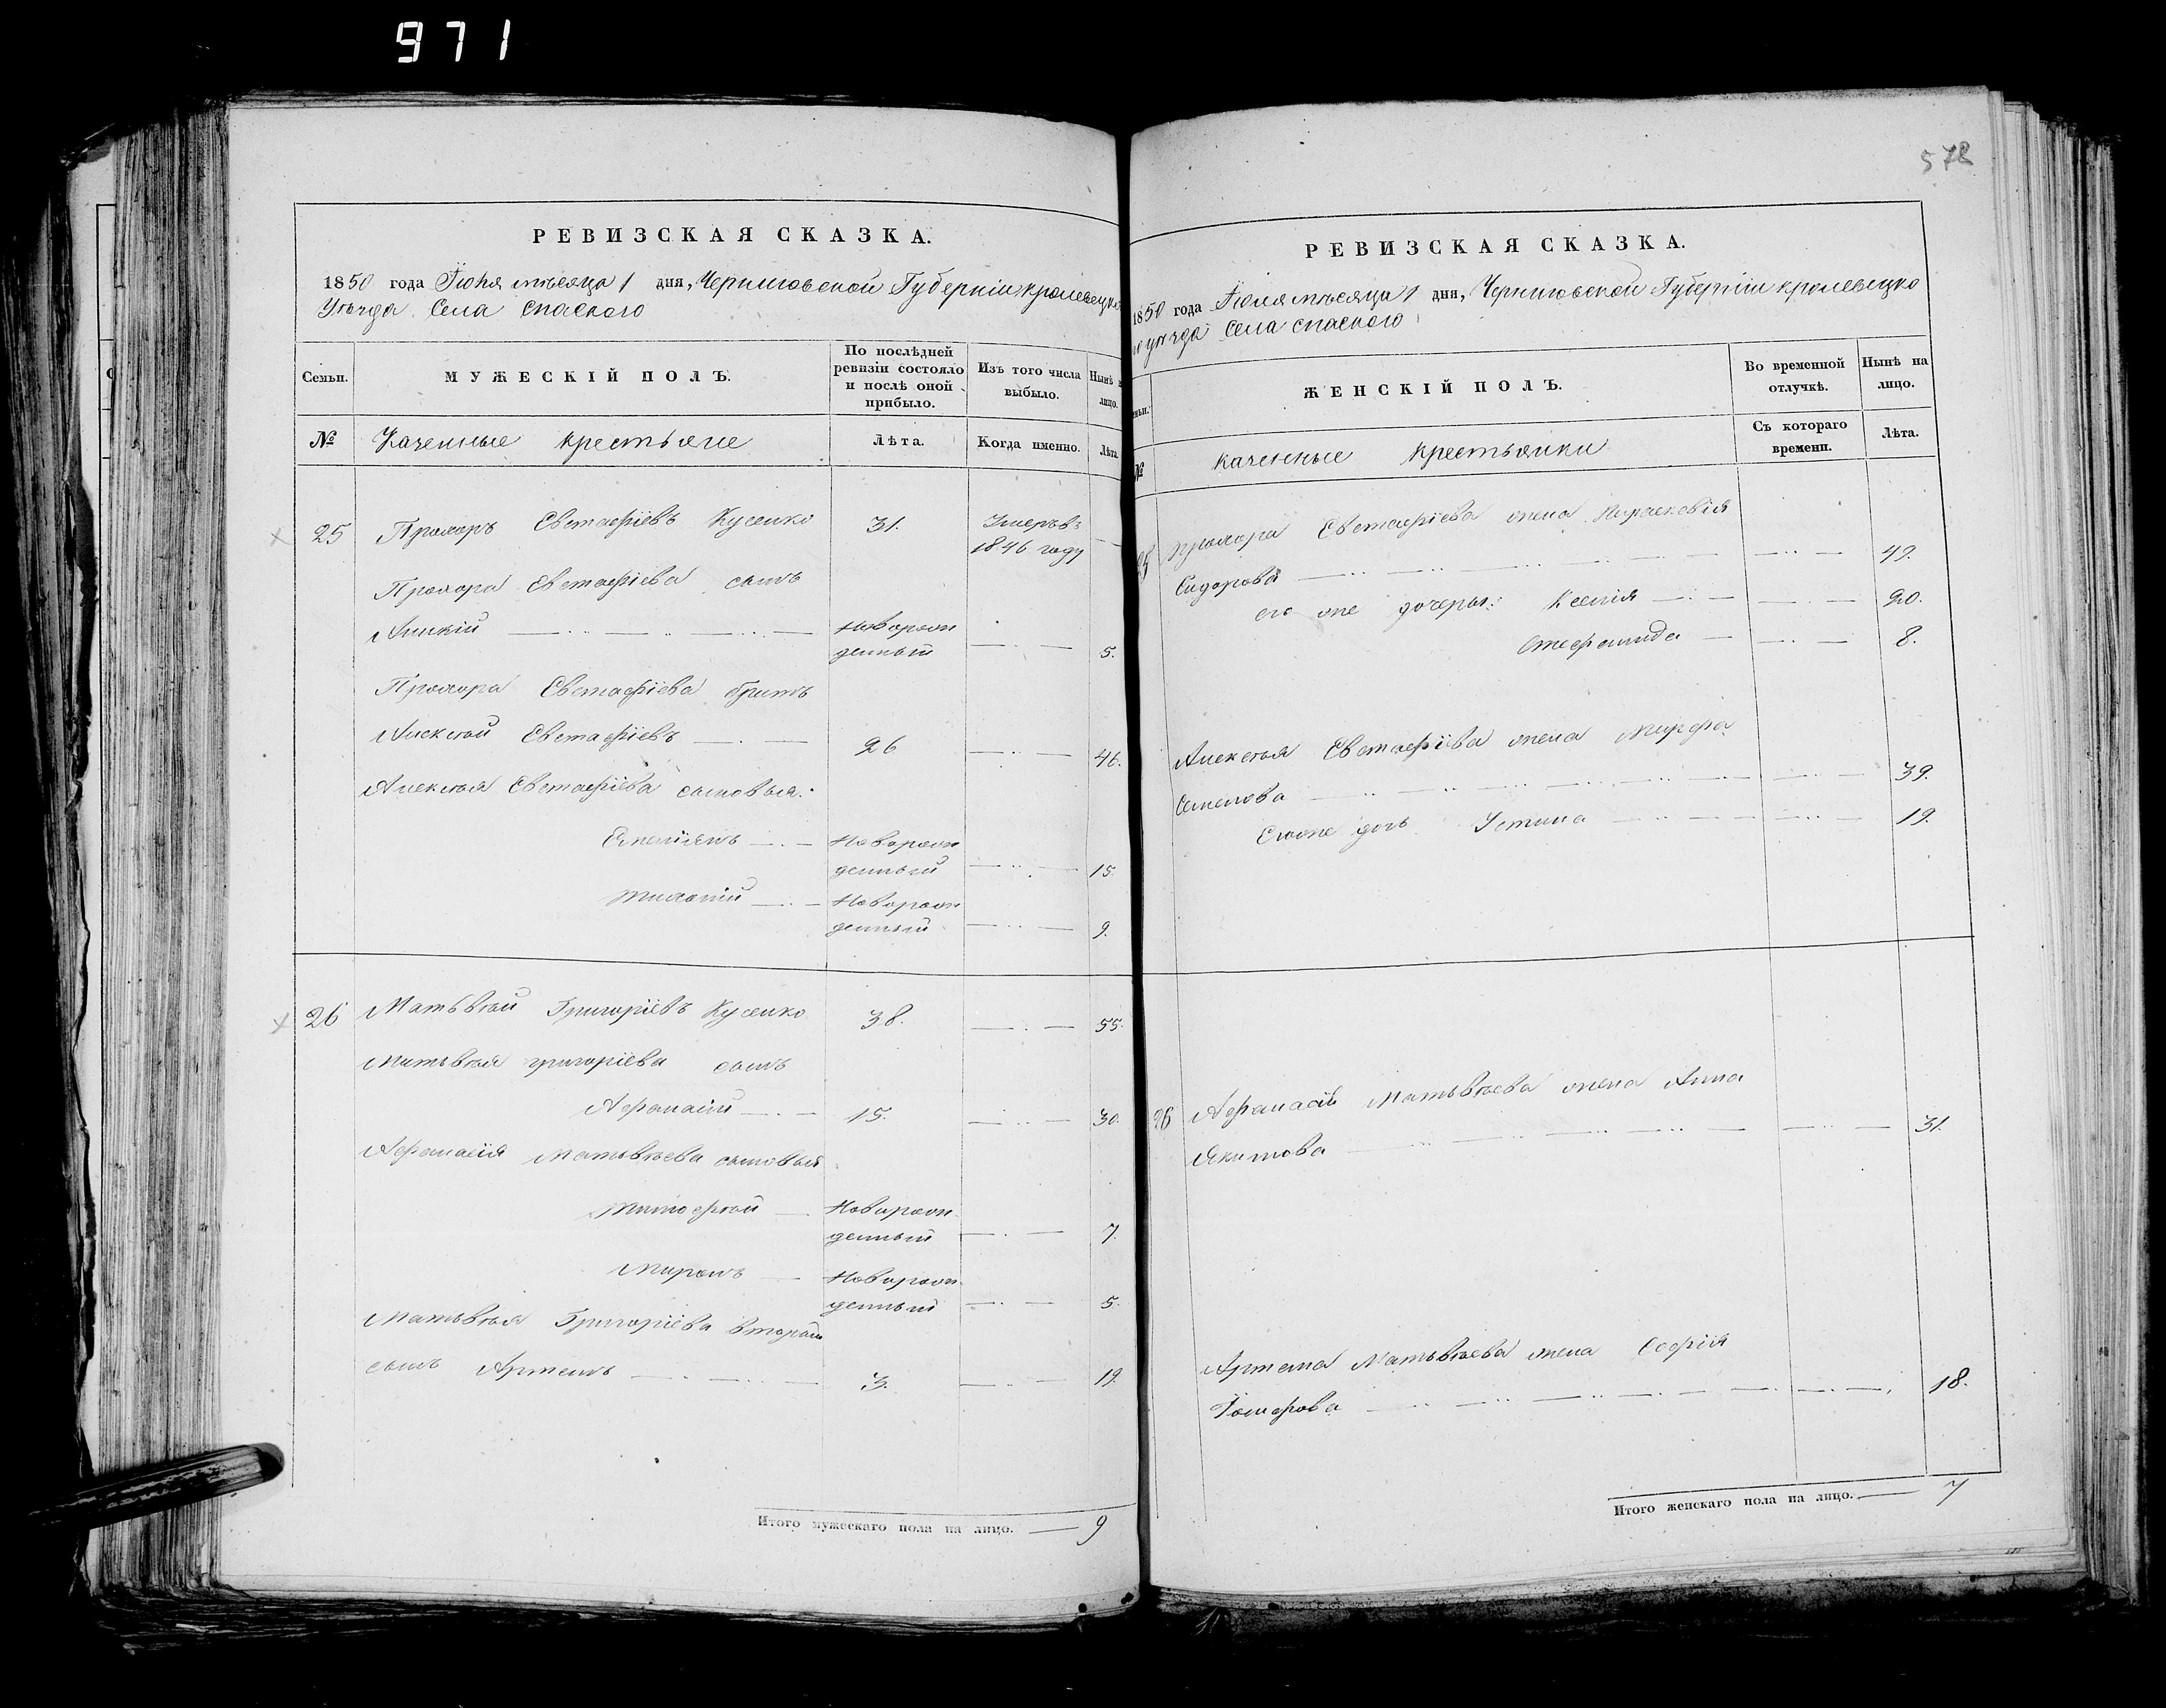 971
578
РЕВИЗСКАЯ СКАЗКА.
1850 года Іюня мѣсяца 1 дня, Черниговской Губерніи Кролевецко
Уѣзда Села Спаского
Семьи.
МУЖЕСКІЙ ПОЛЪ.
По послѣдней ревизіи состояло и послѣ оной прибыло.
Изъ того числа выбыло.
Нынѣ на лицо.
№
Казенные крестьяне
Лѣта.
Когда именно.
Лѣта.
25 Прохоръ Евстафіевъ Кусенко 31. Умеръ въ
1846 году
Прохора Евстафіева сынъ
новорож
денный 5.
Прохора Евстафіева братъ
Алексѣй Евстафіевъ 26 46.
Алексѣя Евстафіева сыновья:
Емеліянъ Новорож
денный 15.
Новорож
денный 9.
26 Матьвѣй Григоріевъ Кусенко 38. 55.
Матьвѣя Григоріева сынъ
Афанасій 15. 30.
Афанасія Матьвѣева сыновья
Тимофѣй Новорож
денный 7.
Миронъ Новорож
денный 5.
Матьвѣя Григоріева вторый
сынъ Артемъ 3. 19.
Итого мужескаго пола на лицо. 9
РЕВИЗСКАЯ СКАЗКА.
1850 года Іюня мѣсяца 1 дня, Черниговской Губерніи Кролевецко
го уѣзда Села Спаского
Семьи.
ЖЕНСКІЙ ПОЛЪ.
Во временной отлучкѣ.
Нынѣ на лицо.
№
Казенные крестьянки
Съ котораго времени.
Лѣта.
25 Прохора Евстафіева жена Параскевія
Сидорова 49.
его же дочеры: Ксенія 20.
Стефанида 8.
Алексѣя Евстафіева жена Марфа
Семенова 39.
Его же дочь Устина 19.
26 Афанасія Матьвѣева жена Анна
Якимова 31.
Артема Матьвѣева жена Софія
18.
Итого женскаго пола на лицо. 7